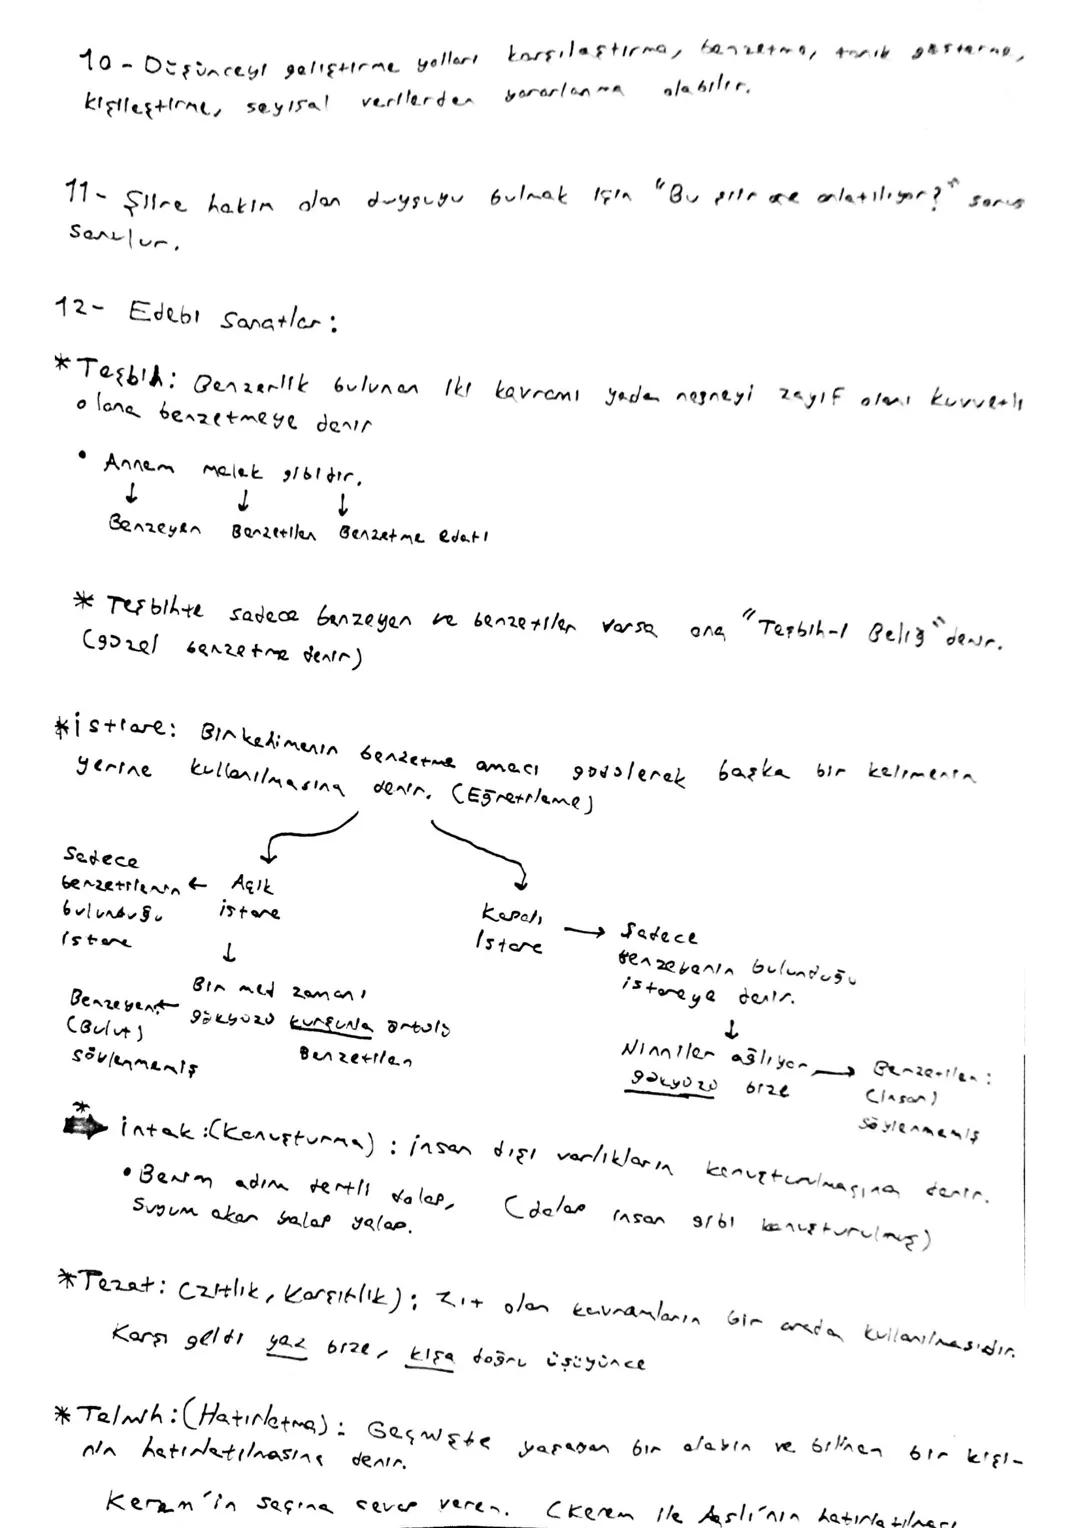 10- Düşünceyi geliştirme yolları karşılaştırma, benzetme, tanık gösterme,
kişileştirme, sayısal verilerden yararlanma olabilir.
11- Şiire hakim olan duyguyu bulmak için "Bu şiir ne anlatılıyor?" sorus
sorulur.
12- Edebi Sanatlar:
* Teşbih: Benzerlik bulunan iki kavramı yada nesneyi zayıf olanı kuvvetli
olana benzetmeye denir
• Annem melek gibidir.
↓ ↓ ↓
Benzeyen Benzetilen Benzetme edatı
* Teşbihte sadece benzeyen ve benzetilen varsa ona "Teşbih-i Beliğ" denir.
(güzel benzetme denir)
* istiare: Bir kelimenin benzetme amacı güdülerek başka bir kelimenin
yerine kullanılmasına denir. (Eğretileme)
Sadece
benzetilenin ← Açık
bulunduğu istiare
istiare
↓
Bin med zamanı
gökyüzü kurşunla örtülü
Benzetilen
Benzeyen ←
(Bulut)
söylenmemiş
Kapalı → Sadece
istiare benzeyenin bulunduğu
istiareye denir.
↓
Ninniler ağlıyor → Benzetilen:
gökyüzü bize (insan)
söylenmemiş
* İntak:(Konuşturma): insan dışı varlıkların konuşturulmasına denir.
• Benim adım dertli dolap, (dolap insan gibi konuşturulmuş)
Suyum akar yalap yalap.
* Tezat: (Zıtlık, Karşıtlık): Zıt olan kavramların bir arada kullanılmasıdır.
Karşı geldi yaz bize, kışa doğru üşüyünce
* Telmih:(Hatırlatma): Geçmişte yaşayan bir olayın ve bilinen bir kişi-
nin hatırlatılmasına denir.
Kerem'in sazına cevap veren. (Kerem ile Aslı'nın hatırlatılması